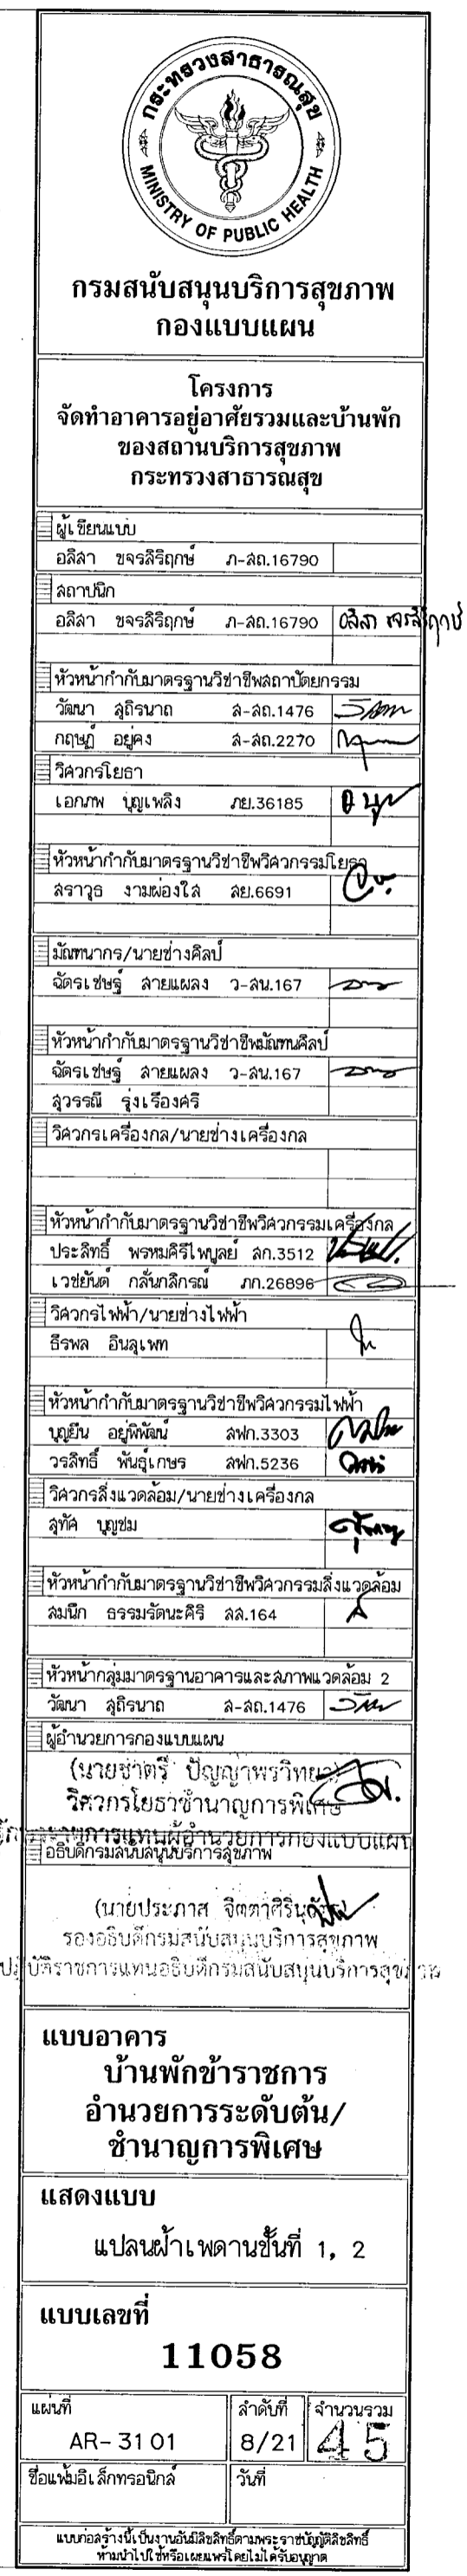 กระทรวงสาธารณสุข
MINISTRY OF PUBLIC HEALTH
กรมสนับสนุนบริการสุขภาพ
กองแบบแผน
โครงการ
จัดทำอาคารอยู่อาศัยรวมและบ้านพัก
ของสถานบริการสุขภาพ
กระทรวงสาธารณสุข
ผู้เขียนแบบ
อลิลา ขจรสิริฤกษ์ ภ-สถ.16790
สถาปนิก
อลิลา ขจรสิริฤกษ์ ภ-สถ.16790 อลิลา ขจรสิริฤกษ์
หัวหน้ากำกับมาตรฐานวิชาชีพสถาปัตยกรรม
วัฒนา สุถิรนาถ ส-สถ.1476
กฤษฎ์ อยู่คง ส-สถ.2270
วิศวกรโยธา
เอกภพ บุญเพลิง ภย.36185
หัวหน้ากำกับมาตรฐานวิชาชีพวิศวกรรมโยธา
สราวุธ งามผ่องใส สย.6691
มัณฑนากร/นายช่างศิลป์
ฉัตรเชษฐ์ สายแผลง ว-สน.167
หัวหน้ากำกับมาตรฐานวิชาชีพมัณฑนศิลป์
ฉัตรเชษฐ์ สายแผลง ว-สน.167
สุวรรณี รุ่งเรืองศรี
วิศวกรเครื่องกล/นายช่างเครื่องกล
หัวหน้ากำกับมาตรฐานวิชาชีพวิศวกรรมเครื่องกล
ประสิทธิ์ พรหมคิรีไพบูลย์ สก.3512
เวชยันต์ กลั่นกสิกรณ์ ภก.26896
วิศวกรไฟฟ้า/นายช่างไฟฟ้า
ธีรพล อินลุเพท
หัวหน้ากำกับมาตรฐานวิชาชีพวิศวกรรมไฟฟ้า
บุญยืน อยู่พิพัฒน์ สฟก.3303
วรสิทธิ์ พันธุ์เกษร สฟก.5236
วิศวกรสิ่งแวดล้อม/นายช่างเครื่องกล
สุทัศ บุญชม
หัวหน้ากำกับมาตรฐานวิชาชีพวิศวกรรมสิ่งแวดล้อม
สมนึก ธรรมรัตนะคิริ สส.164
หัวหน้ากลุ่มมาตรฐานอาคารและสภาพแวดล้อม 2
วัฒนา สุถิรนาถ ส-สถ.1476
ผู้อำนวยการกองแบบแผน
(นายชาตรี ปัญญาพรวิทยา)
วิศวกรโยธาชำนาญการพิเศษ
ราชการแทนผู้อำนวยการกองแบบแผน
อธิบดีกรมสนับสนุนบริการสุขภาพ
(นายประภาส
รองอธิบดีกรมสนับสนุนบริการสุขภาพ
ปฏิบัติราชการแทนอธิบดีกรมสนับสนุนบริการสุขภาพ
แบบอาคาร
บ้านพักข้าราชการ
อำนวยการระดับต้น/
ชำนาญการพิเศษ
แสดงแบบ
แปลนฝ้าเพดานชั้นที่ 1, 2
แบบเลขที่
11058
แผ่นที่ ลำดับที่ จำนวนรวม
AR-31 01 8/21 45
ชื่อแฟ้มอิเล็กทรอนิกส์ วันที่
แบบก่อสร้างนี้เป็นงานอันมีลิขสิทธิ์ตามพระราชบัญญัติลิขสิทธิ์
ห้ามนำไปใช้หรือเผยแพร่โดยไม่ได้รับอนุญาต